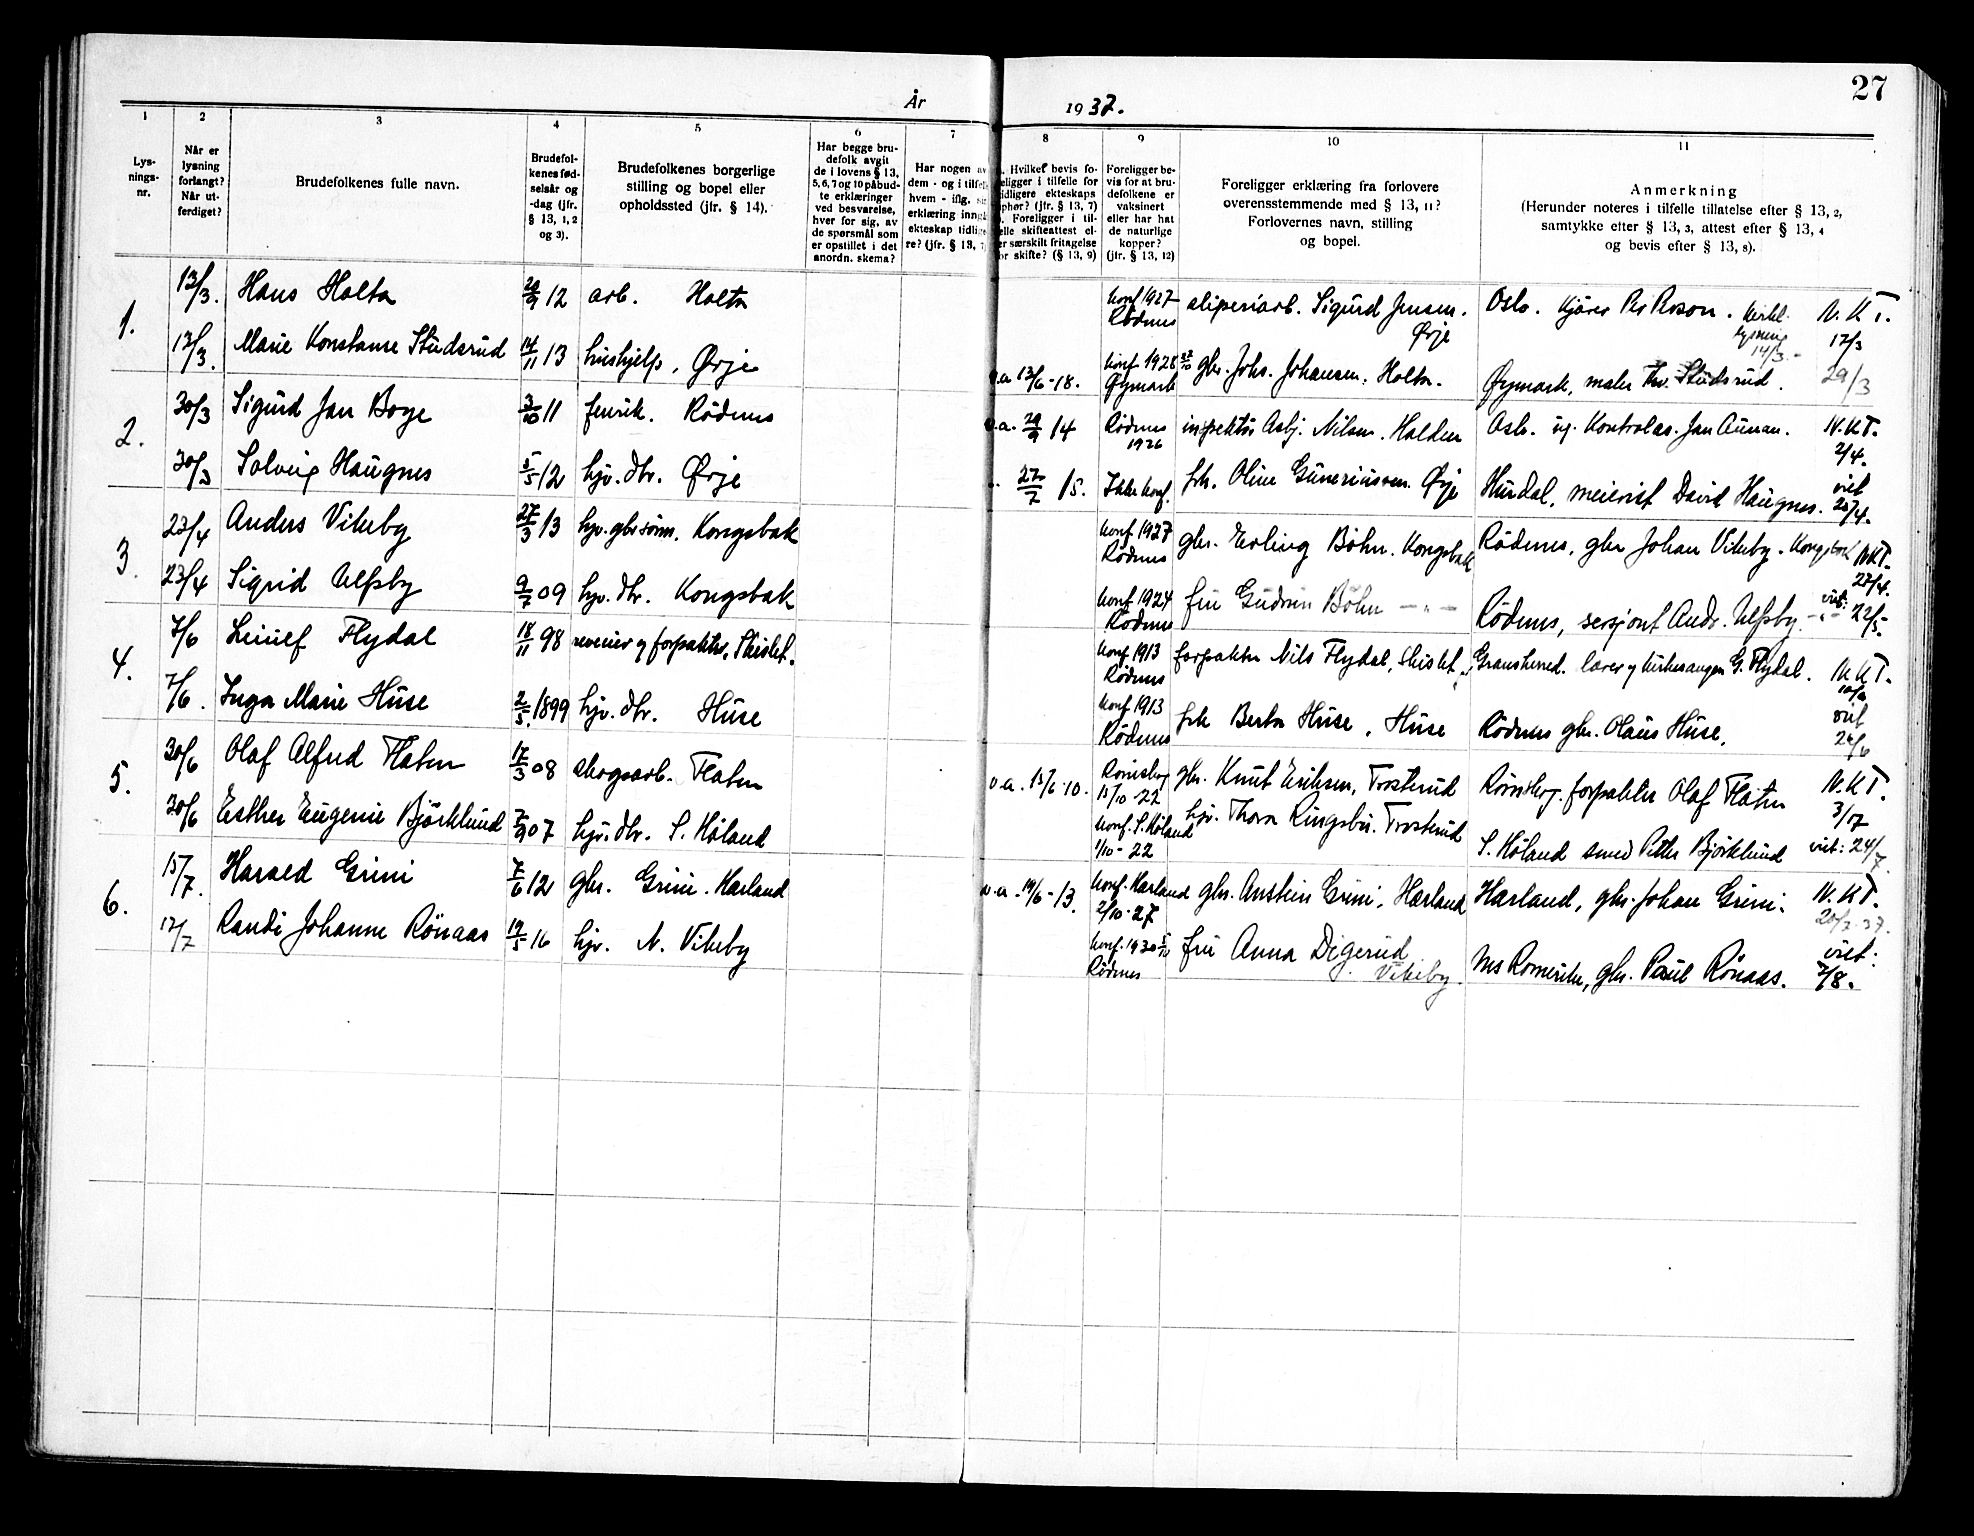 27
År 1937.
1
2
3
4
5
6
7
8
9
10
11
Lys-
nings-
nr.
Når er
lysning
forlangt?
Når ut-
ferdiget?
Brudefolkenes fulle navn.
Brudefol-
kenes fød-
selsår og
-dag (jfr.
§ 13, 1, 2
og 3).
Brudefolkenes borgerlige
stilling og bopel eller
opholdssted (jfr. § 14).
Har begge bru-
defolk avgit
de i lovens § 13,
5, 6, 7 og 10 påbud-
te erklæringer
ved besvarelse,
hver for sig, av
de spørsmål som
er opstillet i det
anordn. skema?
Har nogen av
dem - og i tilfelle
hvem - iflg.
erklæring inng
ekteskap tidlige
re? (jfr. § 13,
Hvilket bevis fo-
religger i tilfelle for
tidligere ekteskaps
ophør? (jfr. § 13, 7)
Foreligger i til-
felle skifteattest el-
ler særskilt fritagelse
for skifte? (§ 13, 9)
Foreligger be-
vis for at bru-
defolkene er
vaksinert
eller har hat
de naturlige
kopper?
(jfr. § 13, 12)
Foreligger erklæring fra forlovere
overensstemmende med § 13, 11?
Forlovernes navn, stilling
og bopel.
Anmerkning
(Herunder noteres i tilfelle tillatelse efter § 13, 2,
samtykke efter § 13, 3, attest efter § 13, 4
og bevis efter § 13, 8).
1.
12/3. Hans Holta 20/9 12 arb. Holta konf 1927 Rødenes sliperiarb. Sigurd Jensen. Ørje Oslo. Kjører Per Person. kirkl. lysning 14/3. - N.K.T. 12/3
12/3. Marie Konstanse Studsrud 14/11 13 hushjelp, Ørje v.a 13/6-18. konf 1928 Øymark gbr. Johs. Johansen, Holta. Øymark, maler Thv. Studsrud. 29/3
2.
30/3 Sigurd Jan Boye 3/10 11 fenrik. Rødenes v.a. 29/9 14 Rødenes 1926 inspektør Asbj. Nilsen. Halden Oslo. og. Kontrolas. Jan Aunan. N.K.T. 2/4.
30/3 Solveig Haugnes 5/5 12 hjv. dtr. Ørje 27/7 15. Ikke konf. frk. Oline Guneriussen. Ørje Hurdal, meierist David Haugnes. viet 20/4.
3.
23/4 Anders Vikeby 27/3 13 hjv. gbrsønn, Kongsbak konf 1927 Rødenes gbr. Erling Böhn. Kongsbak Rødenes, gbr Johan Vikeby. Kongsbak N.K.T. 27/4.
23/4 Sigrid Ulfsby 9/7 09 hjv. dtr. Kongsbak konf 1924 Rødenes fru Gudrun Böhn - " - Rødenes, sersjant Andr. Ulfsby. - " - viet: 22/5.
4.
7/6 Leiulf Flydal 18/11 98 reveier og forpakter, Skislet. konf. 1913 Rødenes forpakter Nils Flydal, Skislet Gransherred. lærer og kirkesanger G. Flydal. N.K.T. 10/6
7/6. Inga Marie Huse 2/5. 1899 hjv. dtr. Huse konf 1913 Rødenes frk Berta Huse, Huse Rødenes gbr. Olaus Huse. viet 26/6
5.
30/6 Olaf Alfred Flaten 17/3 08 skogsarb. Flaten v.a. 15/6-10. Rømskog 15/10-22 gbr. Knut Eriksen, Trosterud Rømskog. forpakter Olaf Flaten N.K.T. 3/7
30/6 Esther Eugenie Björklund 7/9 07 hjv. dtr. S. Høland konf. S. Høland 1/10-22 hjv. Thora Ringsbu. Trosterud S. Høland smed Petter Björklund viet: 24/7
6.
15/7. Harald Grini 7/6 12 gbr. Grini. Hærland v.a. 19/6-13. konf. Hærland 2/10-27 gbr. Anstein Grini, Hærland Hærland, gbr. Johan Grini. N.K.T. 20/7.37.
17/7 Randi Johanne Rönaas 19/5 16 hjv. N. Vikeby konf. 1930 Rødenes fru Anna Digerud Vikeby. Nes Romerike, gbr. Paul Rönaas. viet: 7/8.